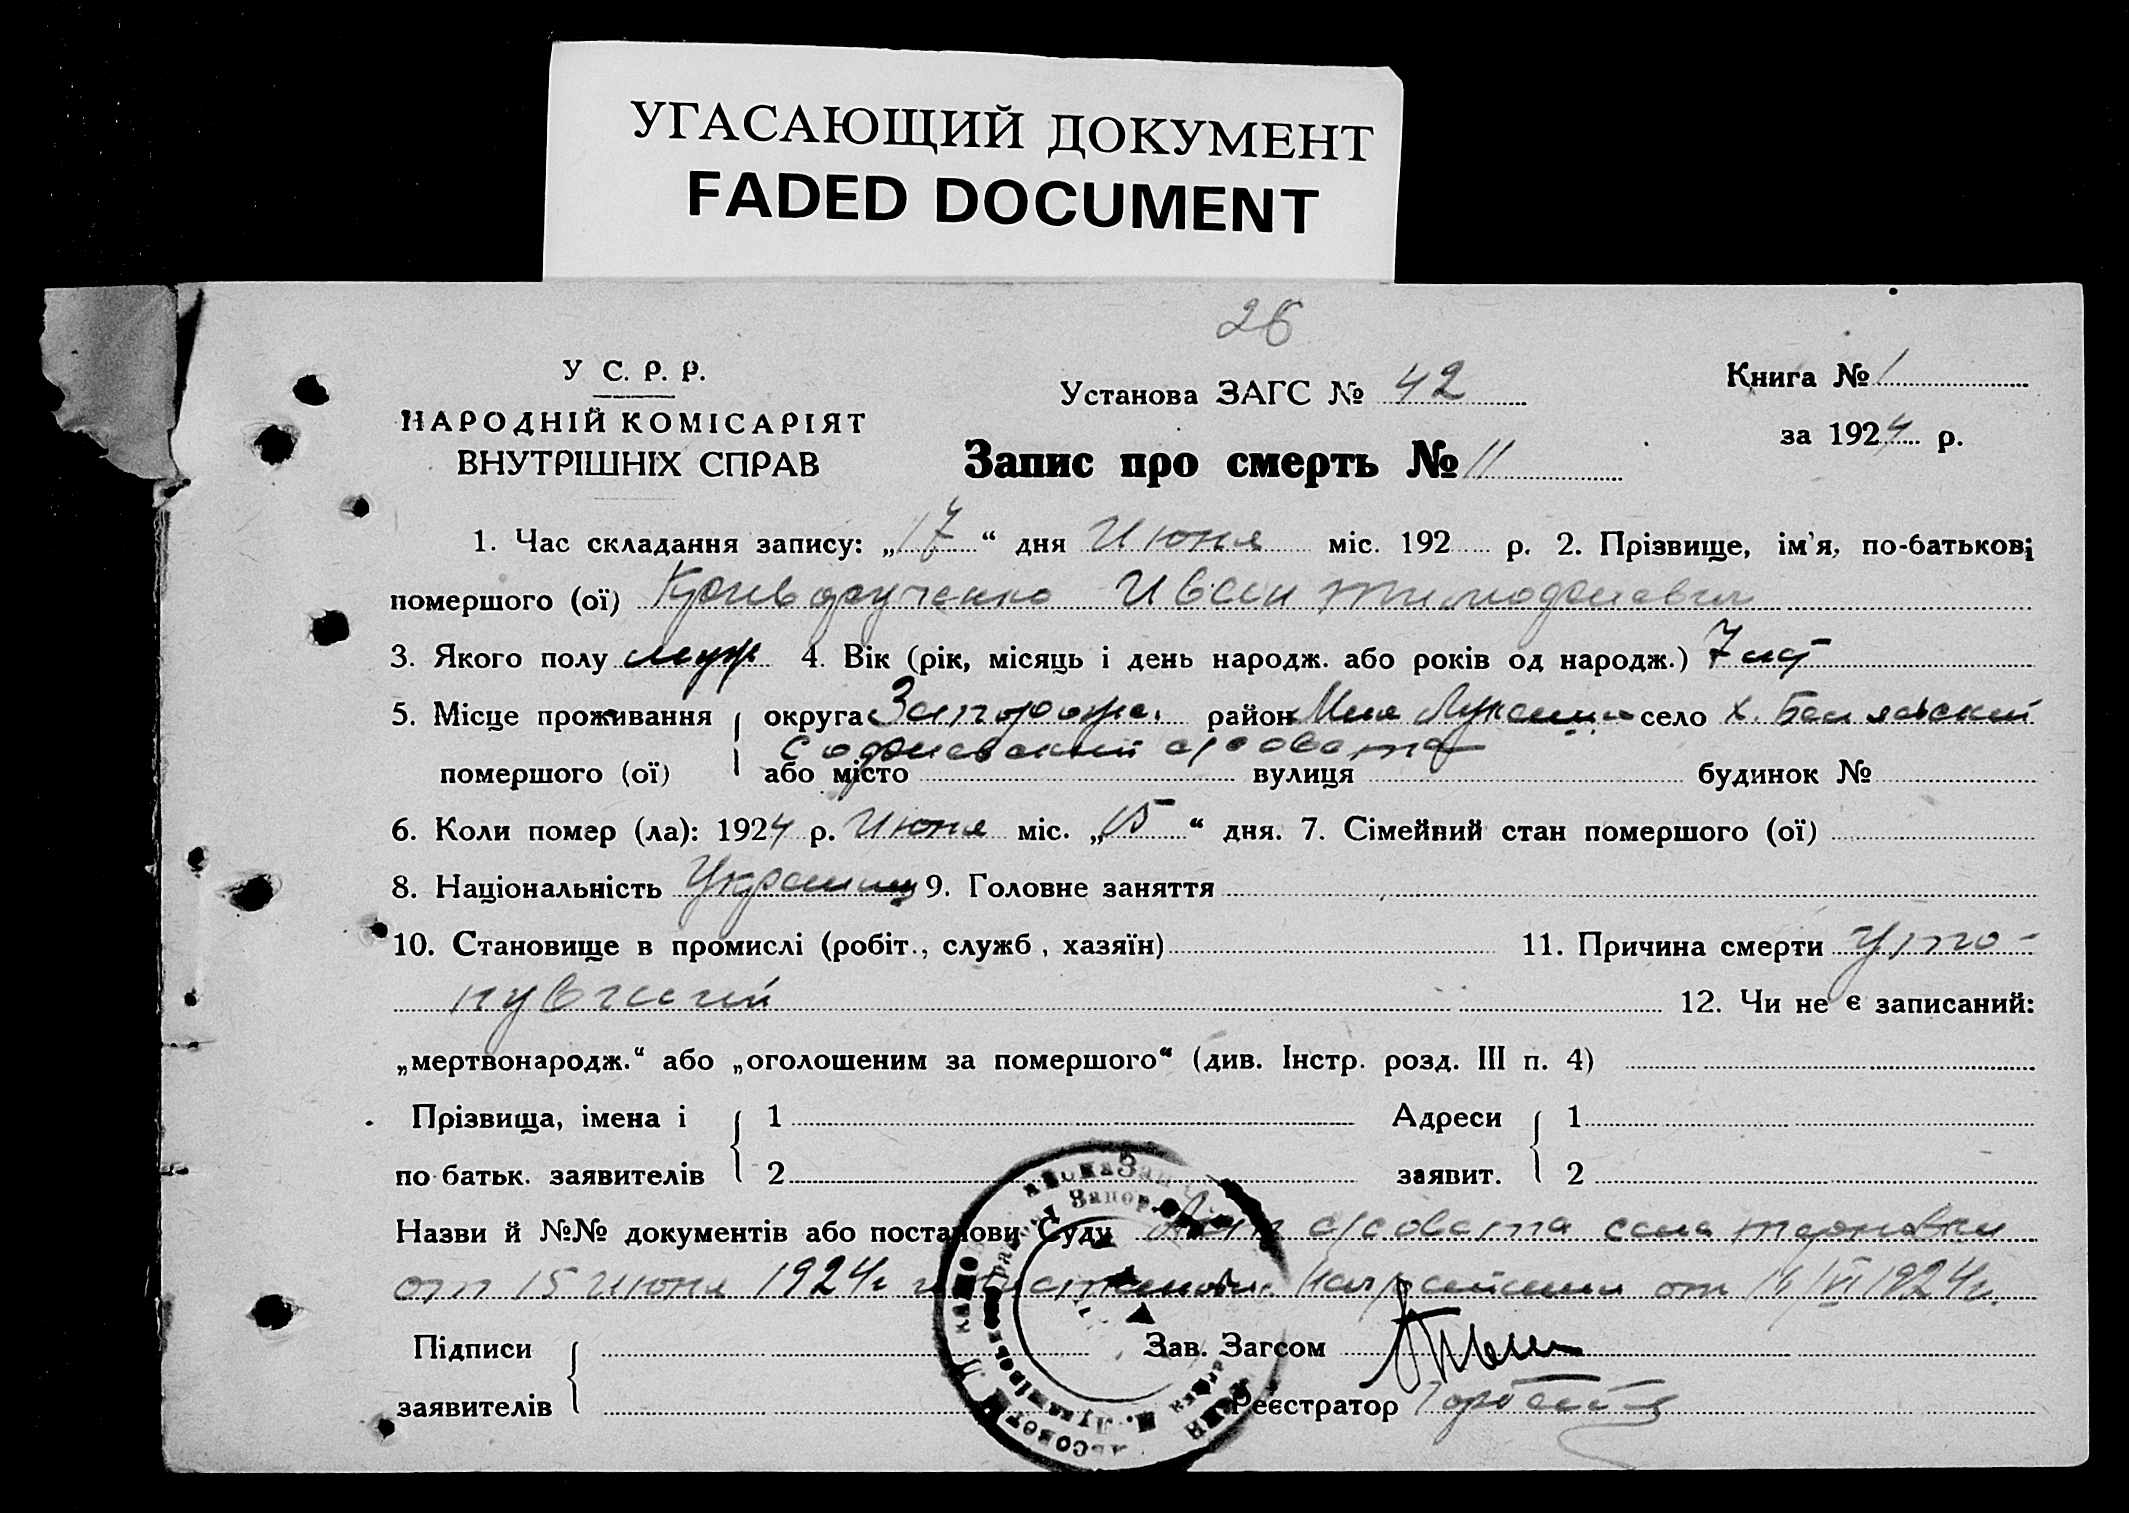 УГАСАЮЩИЙ ДОКУМЕНТ
FADED DOCUMENT
26
У С. Р. Р.
НАРОДНІЙ КОМІСАРІЯТ
ВНУТРІШНІХ СПРАВ
Установа ЗАГС № 42
Запис про смерть № 11
Книга № 1
за 1924 р.
1. Час складання запису: „17“ дня Июня міс. 192 р. 2. Прізвище, ім'я, по-батькові
помершого (ої) Криворученко Иван
3. Якого полу муж 4. Вік (рік, місяць і день народж. або років од народж.) 7 лет
5. Місце проживання округа Запорож. район село х.
Софиевский с/совета
помершого (ої) або місто вулиця будинок №
6. Коли помер (ла): 1924 р. Июня міс. „15“ дня. 7. Сімейний стан помершого (ої)
8. Національність Украинец 9. Головне заняття
10. Становище в промислі (робіт., служб, хазяїн) 11. Причина смерти Уто-
нувший
12. Чи не є записаний:
„мертвонародж.“ або „оголошеним за помершого“ (див. Інстр. розд. III п. 4)
Прізвища, імена і 1 Адреси 1
по батьк. заявителів 2 заявит. 2
Назви й №№ документів або постанови Суду с/совета села Терновки
от 15 июня 1924 г от 16/VI 1924 г.
Підписи Зав. Загсом
заявителів Реєстратор